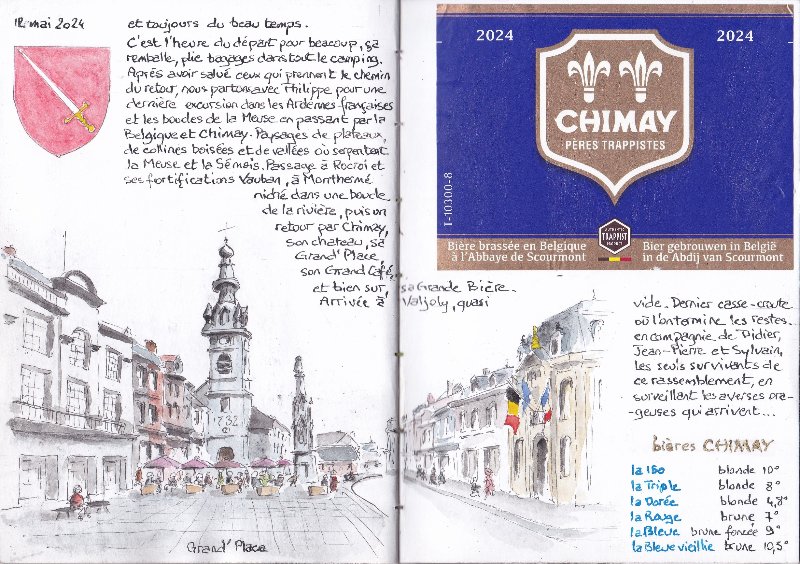 12 mai 2024
et toujours du beau temps.
C'est l'heure du départ pour beaucoup, ça
remballe, plie bagages dans tout le camping.
Après avoir salué ceux qui prennent le chemin
du retour, nous partons avec Philippe pour une
dernière excursion dans les Ardennes françaises
et les boucles de la Meuse en passant par la
Belgique et Chimay. Paysages de plateaux,
de collines boisées et de vallées où serpentent
la Meuse et la Sémois. Passage à Rocroi et
ses fortifications Vauban, à Monthermé
niché dans une boucle
de la rivière, puis on
retour par Chimay,
son chateau, sa
Grand' Place,
son Grand Café,
et bien sur, sa Grande Bière.
Arrivée à Valjoly, quasi
vide. Dernier casse-croute
où l'on termine les restes
en compagnie de Didier,
Jean-Pierre et Sylvain,
les seuls survivants de
ce rassemblement, en
surveillant les averses ora-
-geuses qui arrivent...
1732
Grand' Place
2024
2024
CHIMAY
PÈRES TRAPPISTES
I-10300-8
AUTHENTIC
TRAPPIST
PRODUCT
Bière brassée en Belgique
à l'Abbaye de Scourmont
Bier gebrouwen in België
in de Abdij van Scourmont
bières CHIMAY
la 150 blonde 10°
la Triple blonde 8°
la Dorée blonde 4,8°
la Rouge brune 7°
la Bleue brune foncée 9°
la Bleue vieillie brune 10,5°